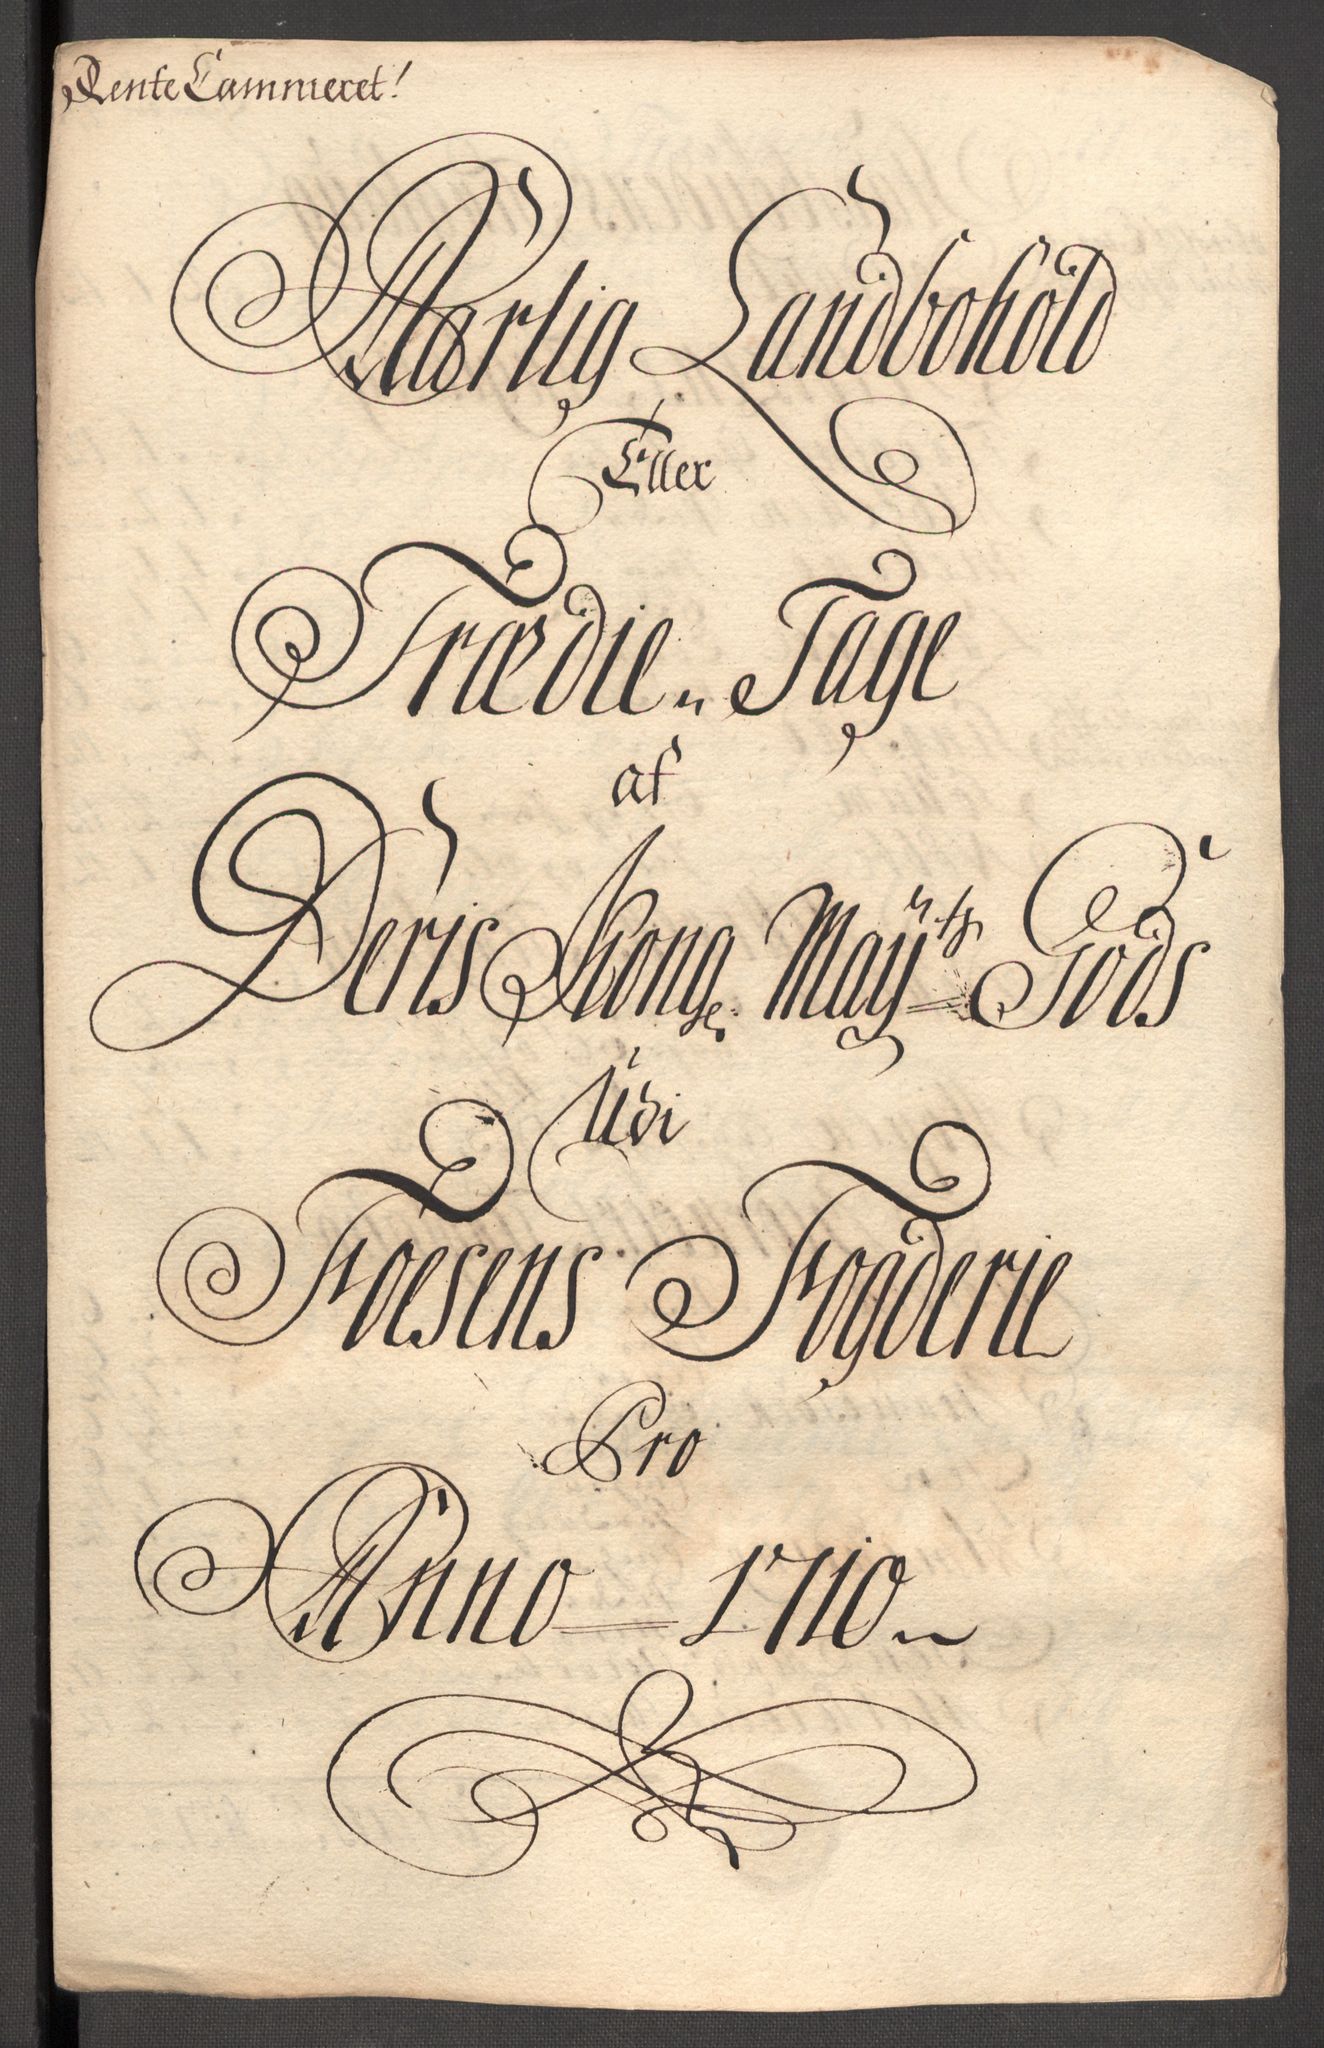 Rente Cammeret!
Aarlig Landbohold
Eller
Trædie Tage
af
Deris Kong. Mayts Gods
Udi
Foesens Fogderie
Pro
Anno 1710